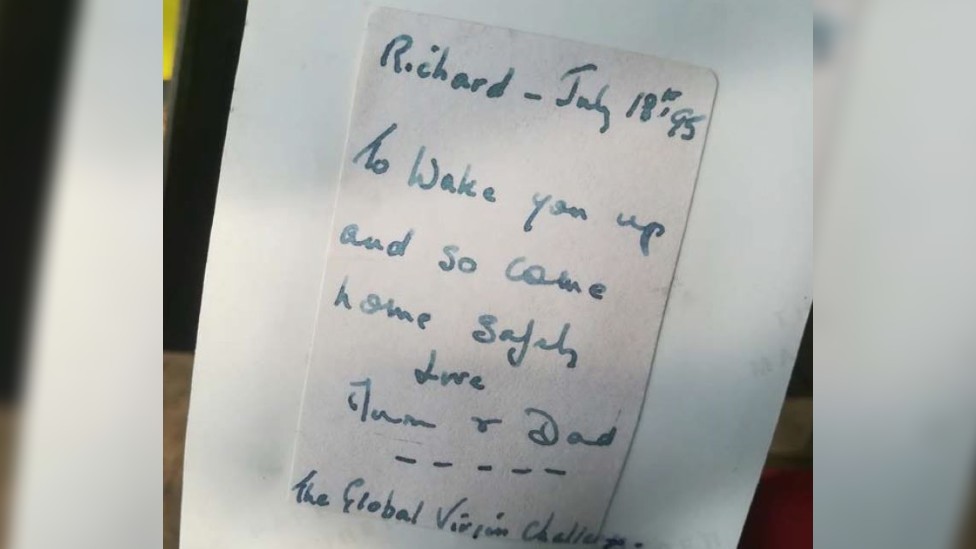 Richard - July 18th 95
To Wake you up
and so come
home safely
Love
Mum & Dad
The Global Virgin Challenge.